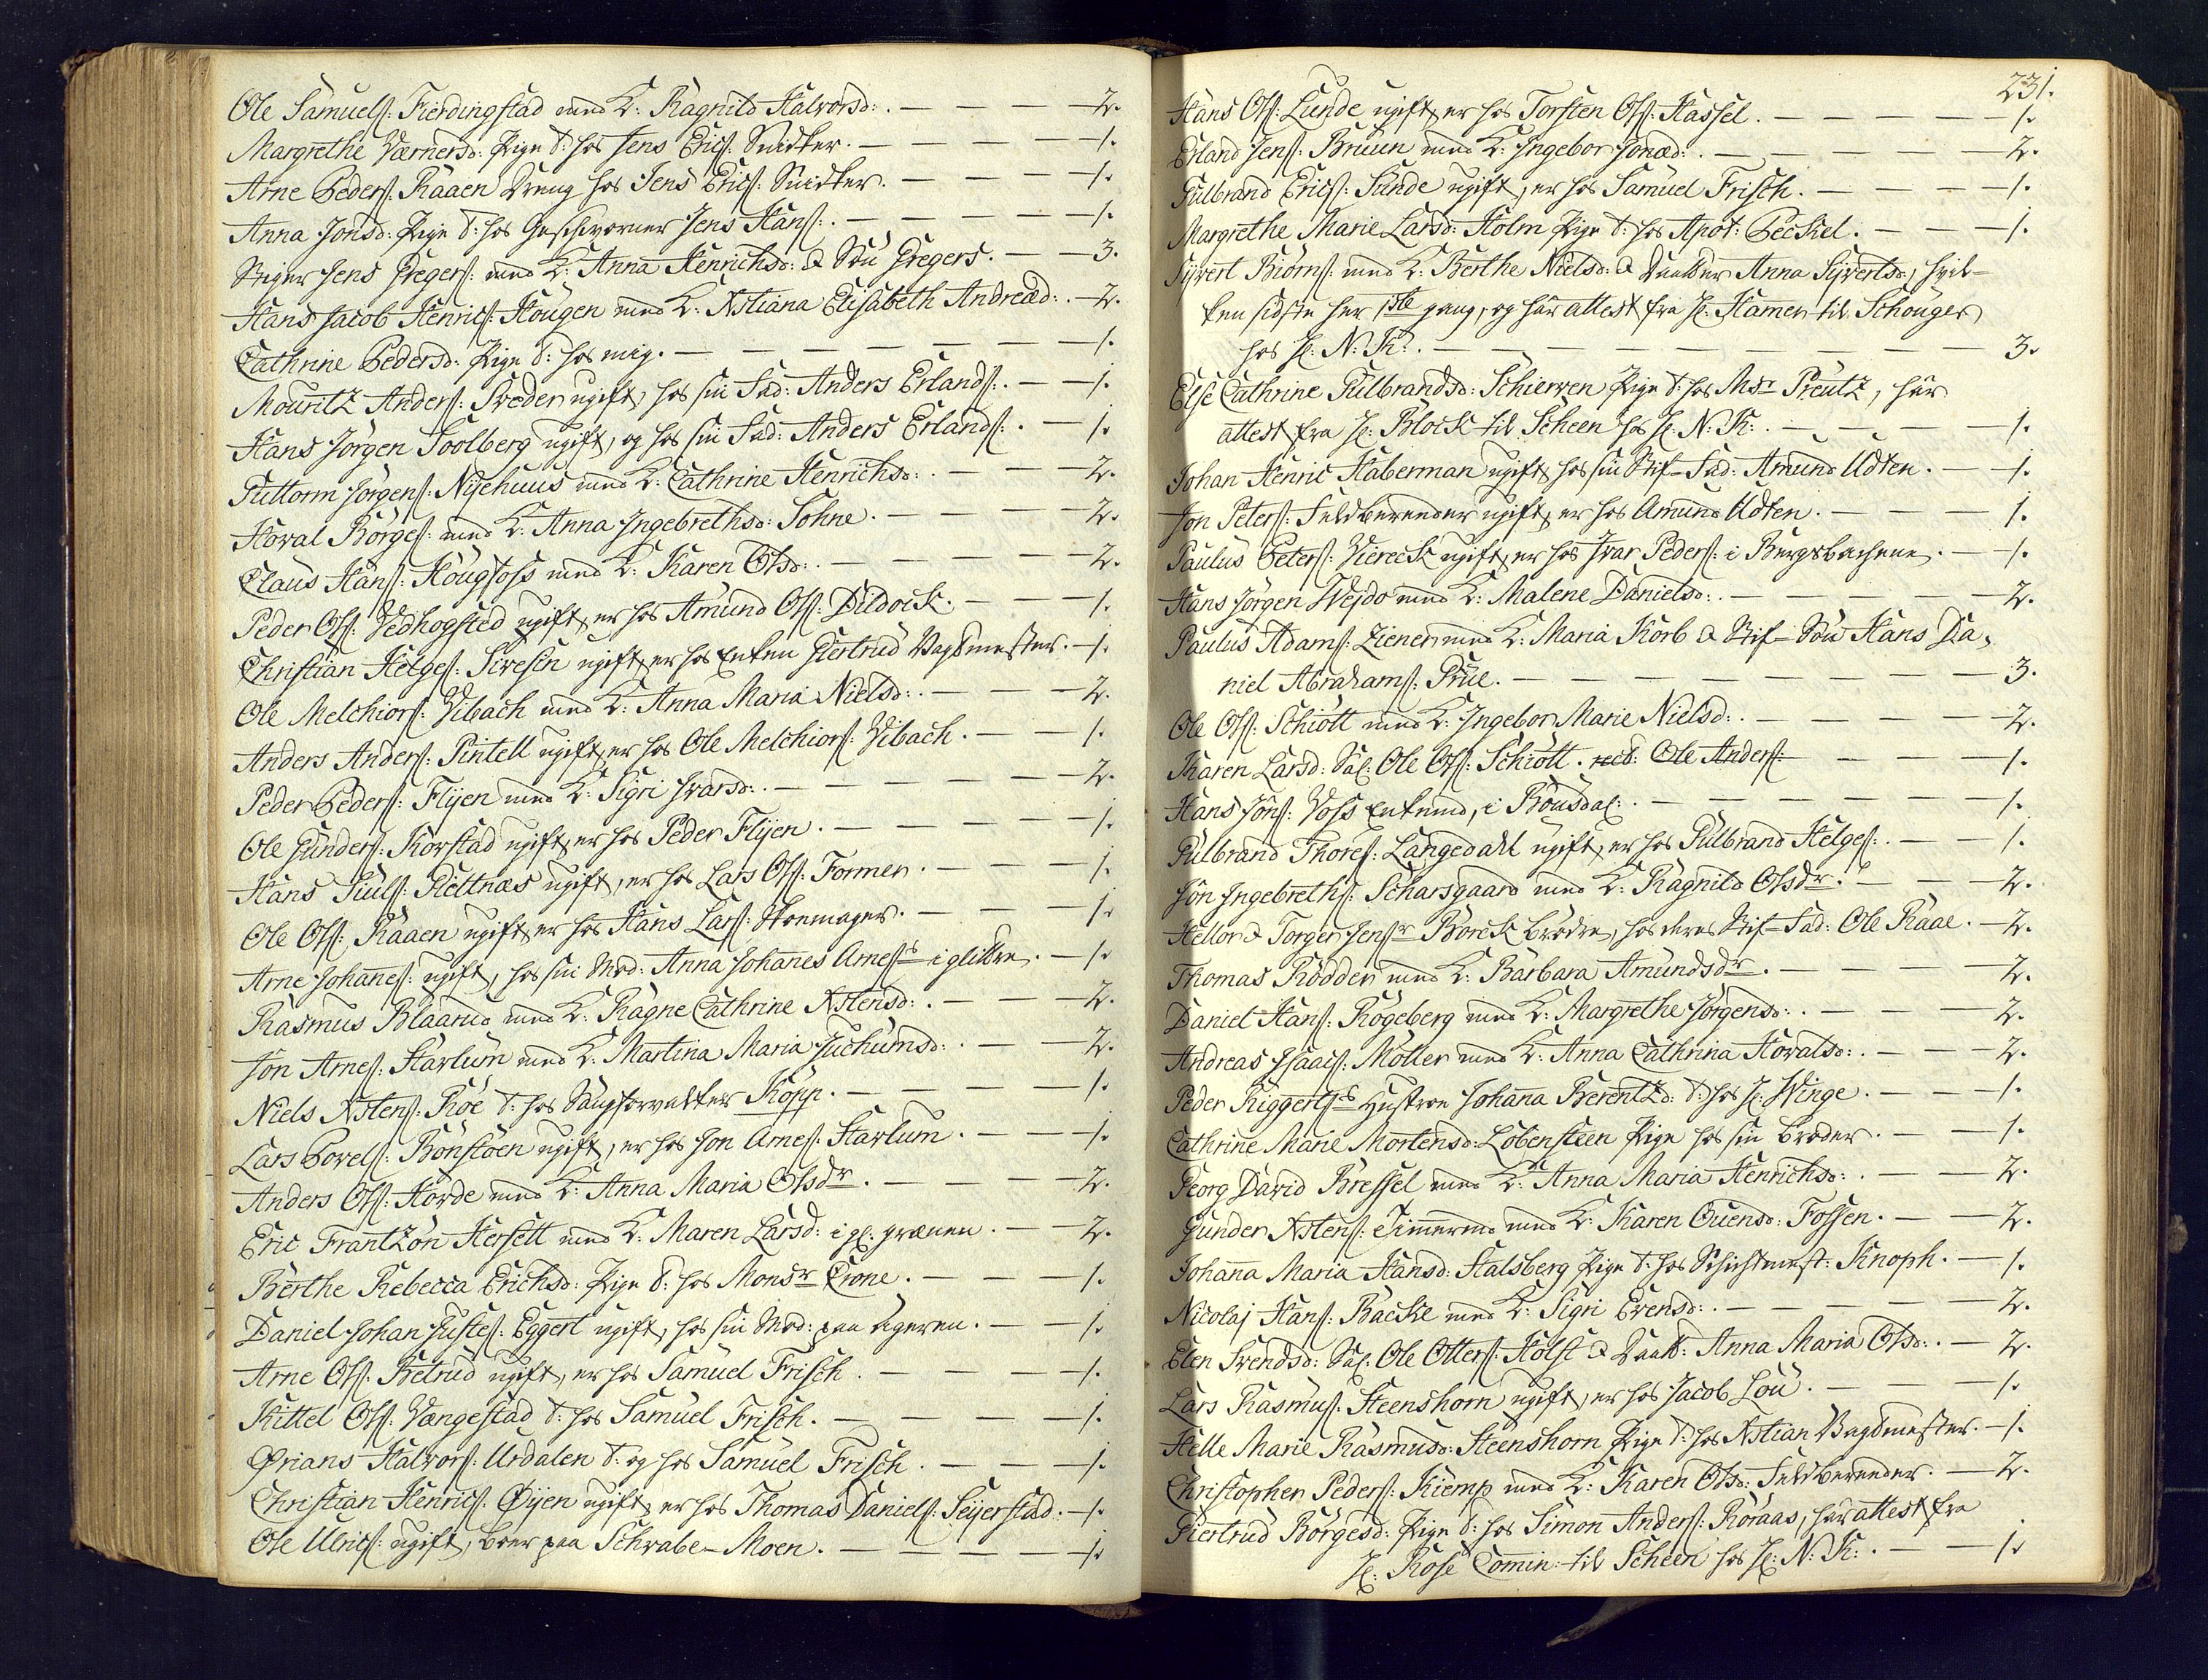 Ole Samuels: Fierdingstad med K: Ragnild Halvorsd: . — — — — 2.
Margrethe Værnersd: Pige t: hos Jens Erics: Snidker. — — — — 1.
Arne Peders: Raaen Dreng hos Jens Erics: Snidker. — — — — 1.
Anna Jonsd: Pige t: hos Geschworner Jens Hans: . — — — — 1.
Stiger Jens Gregers: med K: Anna Henrichsd: & Søn Gregers. — — 3.
Hans Jacob Henrics: Hougen med K: Xstiana Elisabeth Andreæd: . — 2.
Cathrine Pedersd: Pige t: hos mig. — — — — — — — 1.
Mouritz Anders: Sveder ugift, hos sin Fad: Anders Erlands: . — — 1.
Hans Jørgen Soolberg ugift, og hos sin Fad: Anders Erlands: . — 1.
Guttorm Jørgens: Nyehuus med K: Cathrine Henrichsd: . — — — 2.
Haval Børges: med K: Anna Ingebrethsd: Sohne. — — — — 2.
Claus Hans: Hougfoss med K: Karen Olsd: . — — — — 2.
Peder Ols: Vedhogsted ugift, er hos Amund Ols: Dildock. — — — 1.
Christian Helges: Siresen ugift, er hos Enken Giertrud Vagtmester. — 1.
Ole Melchiors: Vibach med K: Anna Maria Nielsd: . — — — 2.
Anders Anders: Pintell ugift, er hos Ole Melchiors: Vibach. — — — 1.
Peder Peders: Flyen med K: Sigri Ivarsd: . — — — — — 2.
Ole Gunders: Korstad ugift, er hos Peder Flyen. — — — — — 1.
Hans Juuls: Giettnæs ugift, er hos Lars Ols: Former. — — — — 1.
Ole Ols: Raaen ugift, er hos Hans Lars: Skoemager. — — — 1.
Arne Johanes: ugift, hos sin Mod: Anna Johanes Arnes: i glittre. — 1.
Rasmus Blaarud med K: Ragne Cathrine Xstensd: . — — — 2.
Jon Arnes: Harlum med K: Martina Maria Juchumsd: . — — — 2.
Niels Xstens: Roe t: hos Saugforvalter Kopp. — — — — 1.
Lars Povels: Bønstøen ugift, er hos Jon Arnes: Harlum. — — — 1.
Anders Ols: Horde med K: Anna Maria Olsdr. — — — — 2.
Eric Frantzøn Hersett med K: Maren Larsd: i gl: grænen. — — 2.
Berthe Rebecca Erichsd: Pige t: hos Monsr Crone. — — — — 1.
Daniel Johan Justes: Eggert ugift, hos sin Mod: paa ageren. — — 1.
Arne Ols: Betrud ugift, er hos Samuel Frisch. — — — — 1.
Kittel Ols: Vangestad t: hos Samuel Frisch. — — — — — 1.
Ørians Halvors: Urdalen t: og hos Samuel Frisch. — — — 1.
Christian Henrics: Øyen ugift, er hos Thomas Daniels: Seyerstad. — 1.
Ole Ulrics: ugift, boer paa Schwabe-Moen. — — — — — 1.
231.
Hans Ols: Lunde ugift, er hos Torsten Ols: Hassel. — — — — — 1.
Erland Jens: Bruun med K: Ingebor Jonæd: . — — — — — 2.
Gulbrand Erics: Sunde ugift, er hos Samuel Frisch. — — — — 1.
Margrethe Marie Larsd: Holm Pige t: hos Apot: Peckel. — — — 1.
Syvert Biørns: med K: Berthe Nielsd: & Daatter Anna Syvertsd:, hvil-
ken sidste her 1ste gang, og har attest fra H: Hamer til Schouger
hos H: N: K: . — — — — — — — — — 3.
Else Cathrine Gulbrandsd: Schierven Pige t: hos Msr Preutz, har
attest fra H: Block til Scheen hos H: N: K: . — — — — — 1.
Johan Henric Haberman ugift, hos sin Stif-Fad: Amund Udten. — 1.
Jon Peters: Feldbereder ugift, er hos Amund Udten. — — — 1.
Paulus Peters: Viereck ugift, er hos Ivar Peders: i Bergsbachene. — 1.
Hans Jørgen Weydo med K: Malene Danielsd: . — — — — — 2.
Paulus Adams: Ziener med K: Maria Korb & Stif-Søn Hans Da,
niel Abrahams: Prúe. — — — — — — — — 3.
Ole Ols: Schiøtt med K: Ingebor Marie Nielsd: . — — — — — 2.
Karen Larsd: Sal: Ole Ols: Schiøtt. Ole Anders: — — — 1.
Hans Jons: Voss Enkemd, i Rousdal: . — — — — — — 1.
Gulbrand Thores: Langedahl ugift, er hos Gulbrand Helges: . — — 1.
Jøn Ingebreths: Scharsgaard med K: Ragnild Olsdr. — — — 2.
Hellor & Torger Jensr Borck brødre, hos deres Stif-Fad: Ole Raae. — 2.
Thomas Rødder med K: Barbara Amundsdr. — — — — — 2.
Daniel Hans: Rogeberg med K: Margrethe Jørgensd: . — — — 2.
Andreas Isaacs: Møller med K: Anna Cathrina Hovalsd: . — — — 2.
Peder Riggerts Hustroe Johana Berentzd: t: hos H: Winge. — — — 1.
Cathrine Marie Mortensd: Løbensteen Pige hos sin broder. — — 1.
Georg David Bressel med K: Anna Maria Henrichsd: . — — — 2.
Gunder Xstens: Timmermd med K: Karen Ouensd: Fossen. — — 2.
Johana Maria Hansd: Stalsberg Pige t: hos Schichtmest: Knoph. — 1.
Nicolaj Hans: Backe med K: Sigri Evensd: . — — — — — 2.
Elen Svendsd: Sal: Ole Otters: Holst & Daatt: Anna Maria Olsd: . — 2.
Lars Rasmus: Steenshorn ugift, er hos Jacob Lou. — — — — 1.
Helle Marie Rasmusd: Steenshorn Pige t: hos Xstian Vagtmester. — 1.
Christopher Peders: Kiemp med K: Karen Olsd: Feldbereder. — 2.
Giertrud Børgesd: Pige t: hos Simon Anders: Røraas, har attest fra
H: Rose Comin: til Scheen hos H: N: K: . — — — 1.